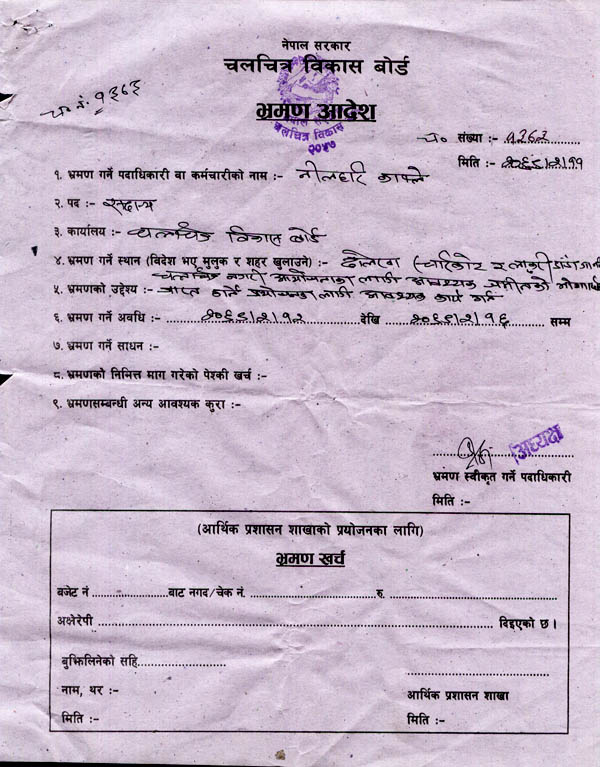 नेपाल सरकार
चलचित्र विकास बोर्ड
च. नं. १३६३
भ्रमण आदेश
नेपाल
चलचित्र विकास
२०५७
च० संख्या :-
मिति :- २०६८।२।११
१. भ्रमण गर्ने पदाधिकारी वा कर्मचारीको नाम :- नीलहरि काफ्ले
२. पद :-
३. कार्यालय :- चलचित्र विकास बोर्ड
४. भ्रमण गर्ने स्थान (विदेश भए मुलुक र शहर खुलाउने) :- दोलखा (चरिकोट र
चलचित्र नगरी आयोजनाका लागी आवश्यक
५. भ्रमणको उद्देश्य :- प्राप्त गर्न प्रयोजनका लागी आवश्यक कार्य गर्न
६. भ्रमण गर्ने अवधि :- २०६८।२।१२ देखि २०६८।२।१६ सम्म
७. भ्रमण गर्ने साधन :-
८. भ्रमणको निमित्त माग गरेको पेश्की खर्च :-
९. भ्रमणसम्बन्धी अन्य आवश्यक कुरा :-
अध्यक्ष
भ्रमण स्वीकृत गर्ने पदाधिकारी
मिति :-
(आर्थिक प्रशासन शाखाको प्रयोजनका लागि)
भ्रमण खर्च
बजेट नं ............ बाट नगद/चेक नं. ............ रु. ............
अक्षेरेपी ............ दिइएको छ।
बुझिलिनेको सहि............
नाम, थर :- आर्थिक प्रशासन शाखा
मिति :- मिति :-